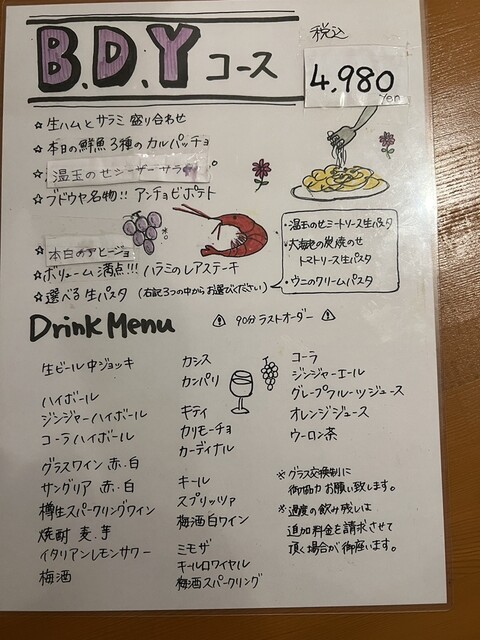 B.D.Y コース
税込
4,980
yen
☆ 生ハムとサラミ 盛り合わせ
☆ 本日の鮮魚3種のカルパッチョ
☆ 温玉のせシーザーサラダ
☆ ブドウヤ名物!! アンチョビポテト
本日のアヒージョ
☆ ボリューム満点!!! ハラミのレアステーキ
☆ 選べる生パスタ (右記3つの中からお選びください)
・温玉のせミートソース生パスタ
・大海老の炭焼のせ
トマトソース生パスタ
・ウニのクリームパスタ
Drink Menu
90分ラストオーダー
生ビール中ジョッキ
ハイボール
ジンジャーハイボール
コーラハイボール
グラスワイン 赤.白
サングリア 赤.白
樽生スパークリングワイン
焼酎 麦.芋
イタリアンレモンサワー
梅酒
カシス
カンパリ
キティ
カリモーチョ
カーディナル
キール
スプリッツァ
梅酒白ワイン
ミモザ
キールロワイヤル
梅酒スパークリング
コーラ
ジンジャーエール
グレープフルーツジュース
オレンジジュース
ウーロン茶
※ グラス交換制に
御協力お願い致します。
※ 過度の飲み残しは
追加料金を請求させて
頂く場合が御座います。